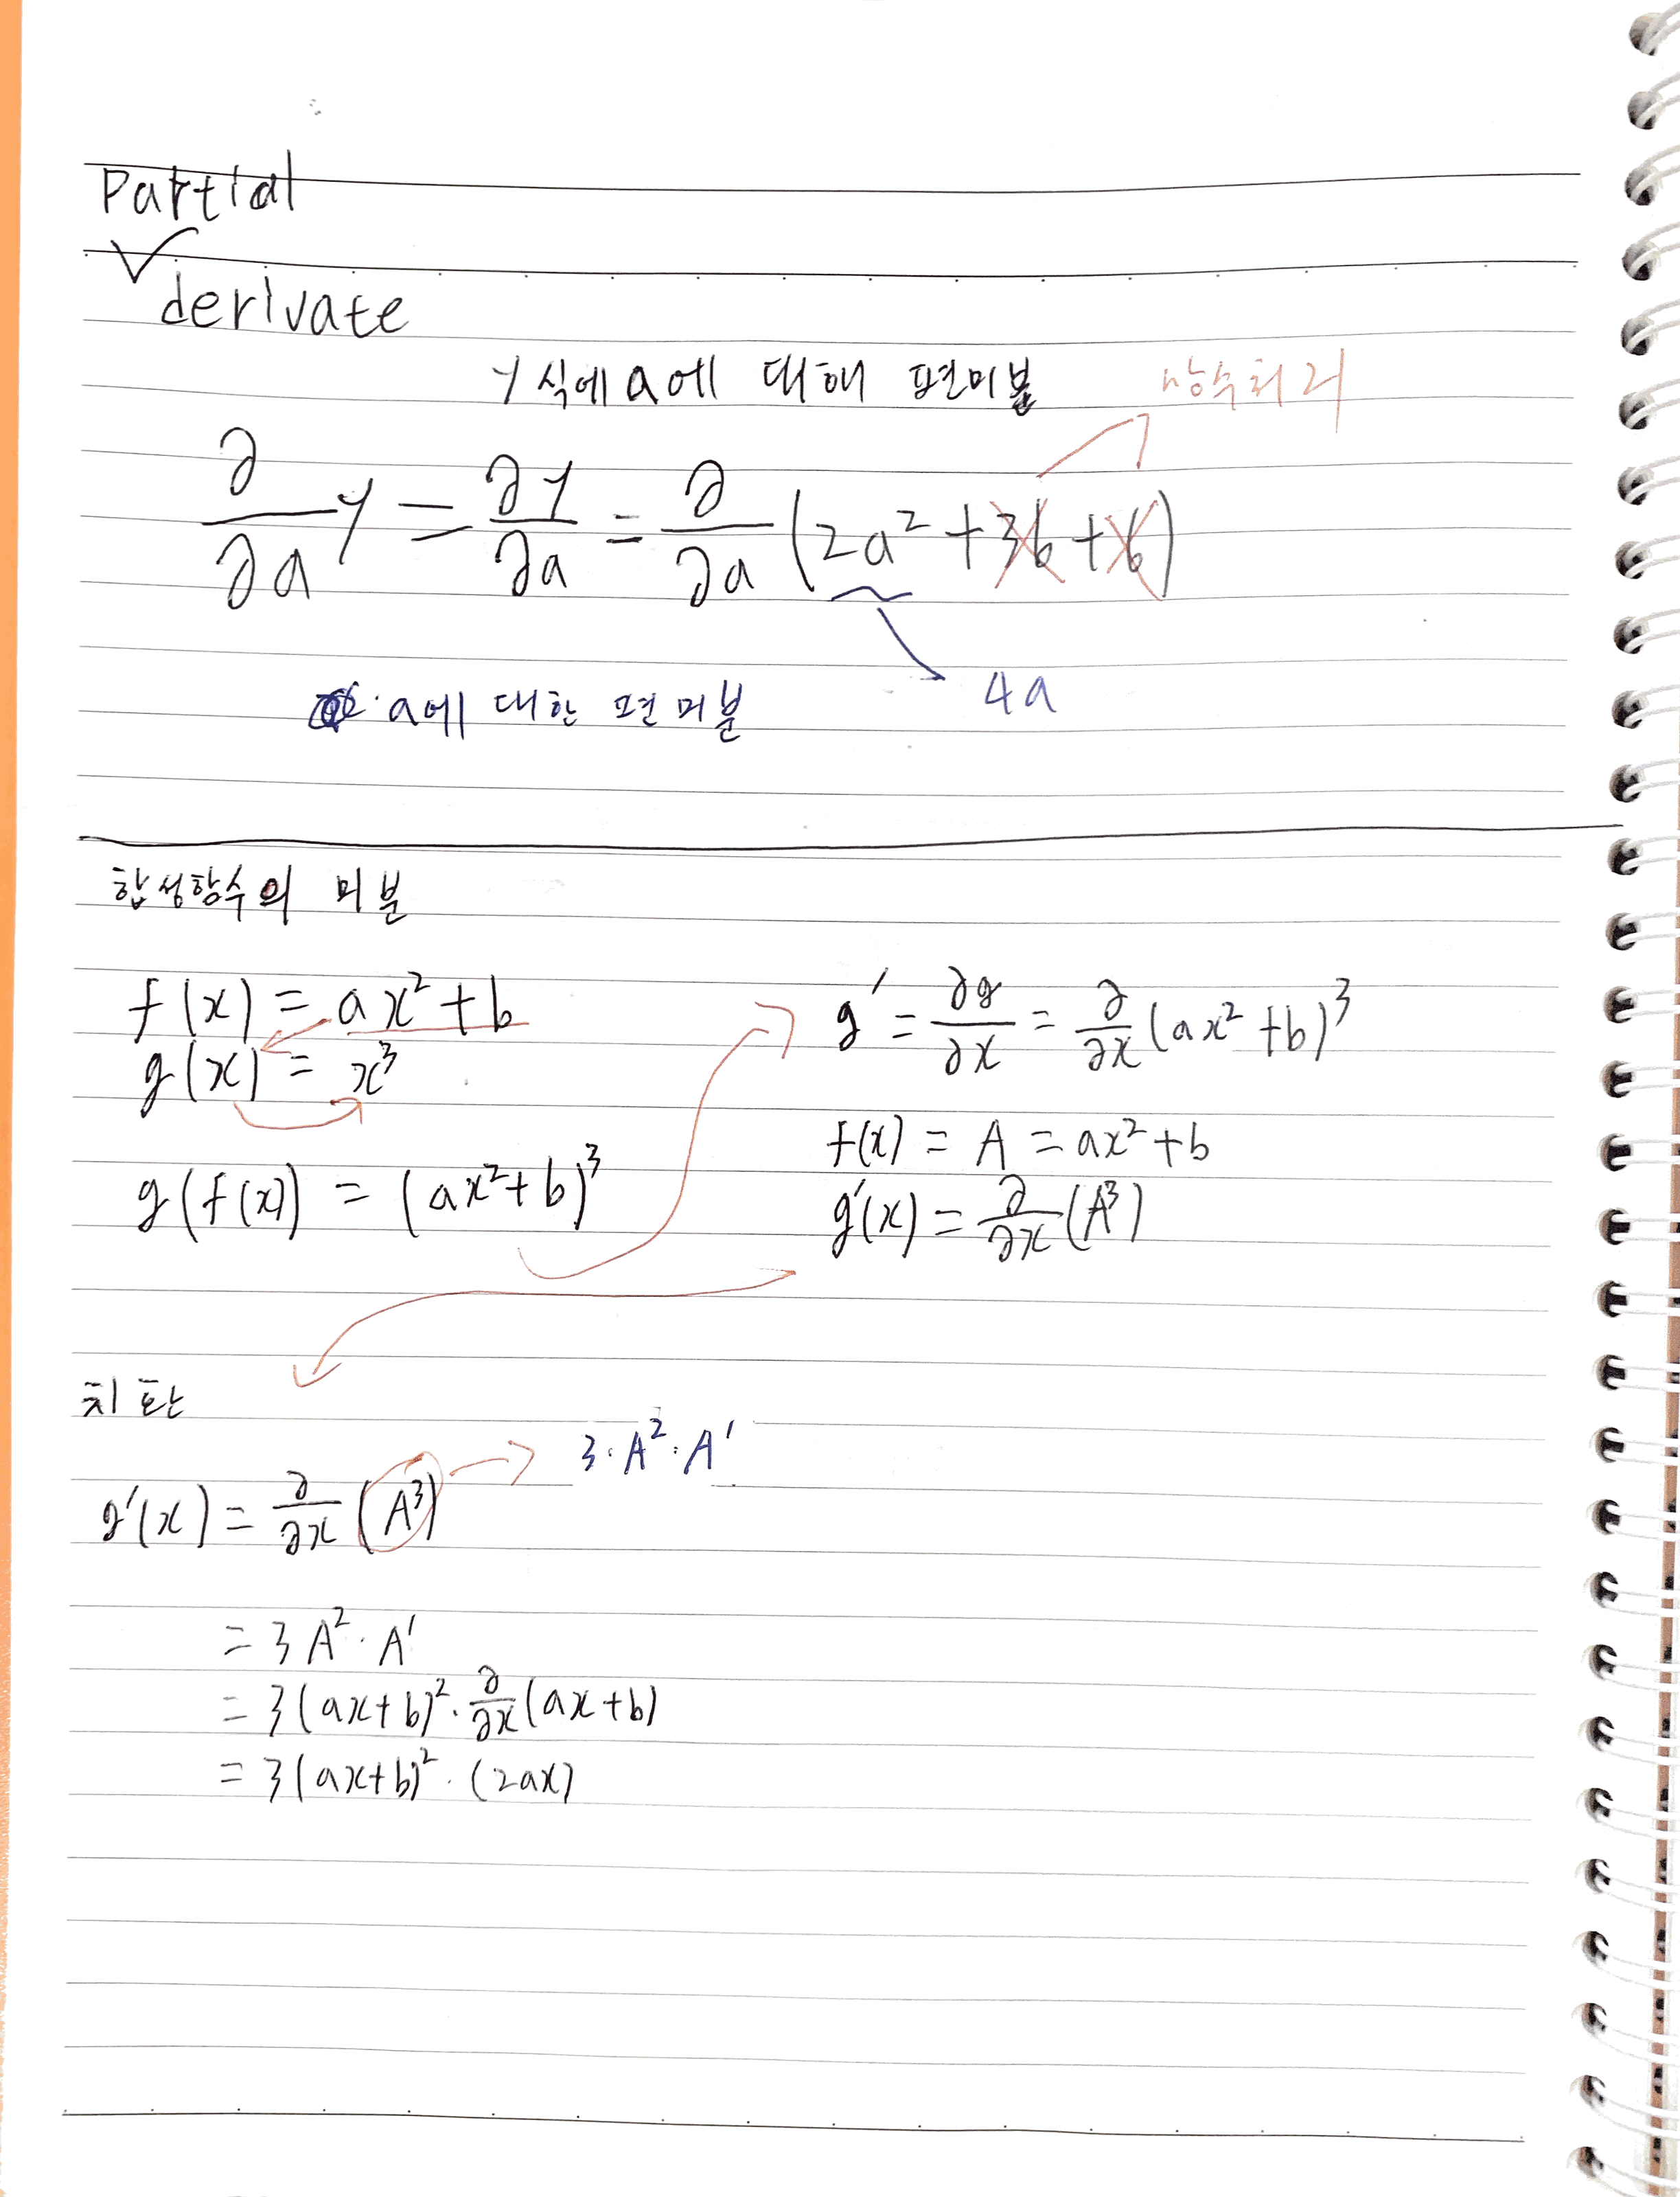 Partial
derivate
y식에 a에 대해 편미분 상수처리
∂/∂a y = ∂y/∂a = ∂/∂a (2a² + 3b + b)
4a
a에 대한 편미분
합성함수의 미분
f(x) = ax² + b
g(x) = x³
g(f(x)) = (ax² + b)³
g' = ∂g/∂x = ∂/∂x (ax² + b)³
f(x) = A = ax² + b
g'(x) = ∂/∂x (A³)
치환
3·A²·A'
g'(x) = ∂/∂x (A³)
= 3A²·A'
= 3(ax+b)²·∂/∂x(ax+b)
= 3(ax+b)²·(2ax)